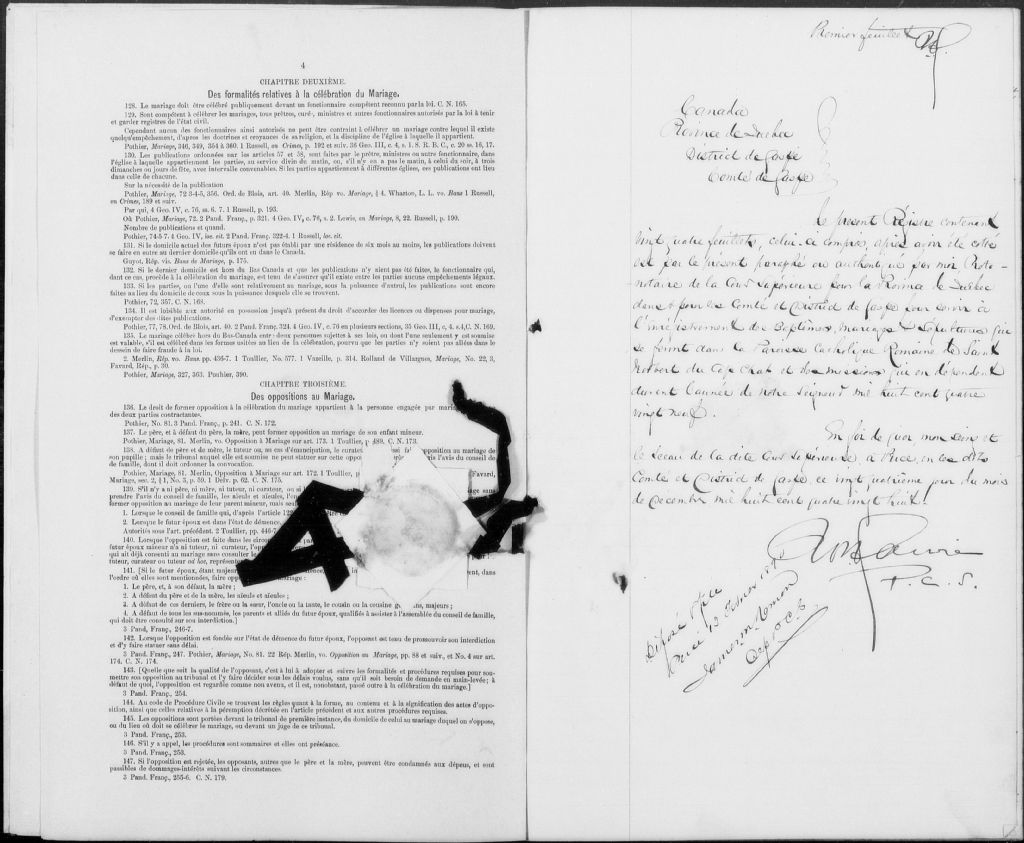 4
CHAPITRE DEUXIÈME.
Des formalités relatives à la célébration du Mariage.
128. Le mariage doit être célébré publiquement devant un fonctionnaire compétent reconnu par la loi. C. N. 165.
129. Sont compétents à célébrer les mariages, tous prêtres, curés, ministres et autres fonctionnaires autorisés par la loi à tenir
et garder registres de l'état civil.
Cependant aucun des fonctionnaires ainsi autorisés ne peut être contraint à célébrer un mariage contre lequel il existe
quelqu'empêchement, d'après les doctrines et croyances de sa religion, et la discipline de l'église à laquelle il appartient.
Pothier, Mariage, 346, 349, 354 à 360. 1 Russell, on Crimes, p. 192 et suiv. 36 Geo. III, c. 4, s. 1. S. R. B. C., c. 20 ss. 16, 17.
130. Les publications ordonnées par les articles 57 et 58, sont faites par le prêtre, ministre ou autre fonctionnaire, dans
l'église à laquelle appartiennent les parties, au service divin du matin, ou, s'il n'y en a pas le matin, à celui du soir, à trois
dimanches ou jours de fête, avec intervalle convenables. Si les parties appartiennent à différentes églises, ces publications ont lieu
dans celle de chacune.
Sur la nécessité de la publication
Pothier, Mariage, 72 3-4-5, 356. Ord. de Blois, art. 40. Merlin, Rép vo. Mariage, § 4. Wharton, L. L. vo. Bans 1 Russell,
on Crimes, 189 et suiv.
Par qui, 4 Geo. IV, c. 76, ss. 6. 7. 1 Russell, p. 193.
Où Pothier, Mariage, 72. 2 Pand. Franç., p. 321. 4 Geo. IV, c. 76, s. 2. Lewis, on Mariage, 8, 22. Russell, p. 190.
Nombre de publications et quand.
Pothier, 74-5-7. 4 Geo. IV, loc. cit. 2 Pand. Franç. 322-4. 1 Russell, loc. cit.
131. Si le domicile actuel des futurs époux n'est pas établi par une résidence de six mois au moins, les publications doivent
se faire en outre au dernier domicile qu'ils ont eu dans le Canada.
Guyot, Rép. vis. Bans de Mariage, p. 175.
132. Si le dernier domicile est hors du Bas Canada et que les publications n'y aient pas été faites, le fonctionnaire qui,
dans ce cas, procède à la célébration du mariage, est tenu de s'assurer qu'il n'existe entre les parties aucuns empêchements légaux.
133. Si les parties, ou l'une d'elles sont relativement au mariage, sous la puissance d'autrui, les publications sont encore
faites au lieu du domicile de ceux sous la puissance desquels elle se trouvent.
Pothier, 72, 357. C. N. 168.
134. Il est loisible aux autorité en possession jusqu'à présent du droit d'accorder des licences ou dispenses pour mariage,
d'exempter des dites publications.
Pothier, 77, 78. Ord. de Blois, art. 40. 2 Pand. Franç. 324. 4 Geo. IV, c. 76 en plusieurs sections, 35 Geo. III, c. 4. s.4, C. N. 169.
135. Le mariage célébré hors du Bas-Canada entre deux personnes sujettes à ses lois, ou dont l'une seulement y est soumise
est valable, s'il est célébré dans les formes usitées au lieu de la célébration, pourvu que les parties n'y soient pas allées dans le
dessein de faire fraude à la loi.
2. Merlin, Rép. vo. Bans. pp. 436-7. 1 Toullier, No. 577. 1 Vazeille, p. 314. Rolland de Villargues, Mariage, No. 22, 3,
Favard, Rép., p. 30.
Pothier, Mariage, 327, 363. Pouhier, 390.
CHAPITRE TROISIÈME.
Des oppositions au Mariage.
136. Le droit de former opposition à la célébration du mariage appartient à la personne engagée par
des deux parties contractantes.
Pothier, No. 81. 3 Pand. Franç., p. 241. C. N. 172.
137. Le père, et à défaut du père, la mère, peut former opposition au mariage de son enfant mineur.
Pothier, Mariage, 81. Merlin, vo. Opposition à Mariage sur art. 173. 1 Toullier, p 489. C. N. 173.
138. A défaut de père et de mère, le tuteur ou, au cas d'émancipation, le curateur opposition au mariage de
son pupille; mais le tribunal auquel elle est soumise ne peut statuer sur cette l'avis du conseil de
de famille, dont il doit ordonner la convocation.
Pothier, Mariage, 81. Merlin, Opposition à Mariage sur art. 172. 1 Toullier, Favard,
Mariage, sec. 2, § 1, No. 5, p. 59. 1 Delv. p. 62. C. N. 175.
139. S'il n'y a ni père, ni mère, ni tuteur, ni curateur, ou sans
prendre l'avis du conseil de famille, les aïeuls et aïeules,
former opposition au mariage de leur parent mineur, mais
1. Lorsque le conseil de famille qui, d'après l'article
2. Lorsque le futur époux est dans l'état de démence.
Autorités sous l'art. précédent. 2 Toullier, pp.
140. Lorsque l'opposition est faite dans les
futur époux mineur n'a ni tuteur, ni curateur,
qui ait déjà consenti au mariage sans consulter le
tuteur, curateur ou tuteur ad hoc,
141. [Si le futur époux, étant dans
l'ordre où elles sont mentionnées, faire mariage:
1. Le père, et, à son défaut, la mère;
2. A défaut du père et de la mère, les aïeuls et aïeules;
3. A défaut de ces derniers, le frère ou la sœur, l'oncle ou la tante, le cousin ou la cousine majeurs;
4. A défaut de tous les sus-nommés, les parents et alliés du futur époux, qualifiés à assister à l'assemblée du conseil de famille,
qui doit être consulté sur son interdiction.]
3 Pand. Franç., 246-7.
142. Lorsque l'opposition est fondée sur l'état de démence du futur époux, l'opposant est tenu de promouvoir son interdiction
et d'y faire statuer sans délai.
3 Pand. Franç., 247. Pothier, Mariage, No. 81. 22 Rép. Merlin, vo. Opposition au Mariage, pp. 88 et suiv., et No. 4 sur art.
174. C. N. 174.
143. [Quelle que soit la qualité de l'opposant, c'est à lui à adopter et suivre les formalités et procédures requises pour soumettre
son opposition au tribunal et l'y faire décider sous les délais voulus, sans qu'il soit besoin de demande en main-levée; à
défaut de quoi, l'opposition est regardée comme non avenu, et il est, nonobstant, passé outre à la célébration du mariage.]
3 Pand. Franç., 254.
144. Au code de Procédure Civile se trouvent les règles quant à la forme, au contenu et à la signification des actes d'opposition,
ainsi que celles relatives à la péremption décrétée en l'article précédent et aux autres procédures requises.
145. Les oppositions sont portées devant le tribunal de première instance, du domicile de celui au mariage duquel on s'oppose,
ou du lieu où doit se célébrer le mariage, ou devant un juge de ce tribunal.
3 Pand. Franç., 253.
146. S'il y a appel, les procédures sont sommaires et elles ont préséance.
3 Pand. Franç., 253.
147. Si l'opposition est rejetée, les opposants, autres que le père et la mère, peuvent être condamnés aux dépens, et sont
passibles de dommages-intérêts suivant les circonstances
3 Pand. Franç., 255-6. C. N. 179.
Premier feuillet
Canada
Province de Québec
District de Gaspé
Comté de Gaspé
Le présent Régistre contenant
vingt quatre feuillets, celui-ci compris, après avoir été coté
est par le présent paraphé ou authentiqué par moi Proto-
-notaire de la Cour Supérieure pour la Province de Québec
dans & pour les Comté et District de Gaspé pour servir à
l'enrégistrement des Baptêmes, Mariages & Sépultures qui
se feront dans la Paroisse Catholique Romaine de Saint
Norbert du Cap Chat et des missions qui en dépendent
durant l'année de notre Seigneur mil huit cent quatre
vingt neuf.
En foi de quoi mon seing et
le Sceau de la dite Cour Supérieure à Percé, en les dits
Comté et District de Gaspé ce vingt quatrième jour du mois
de Décembre mil huit cent quatre vingt huit.
P. C. S.
Déposé
Percé 13 Février